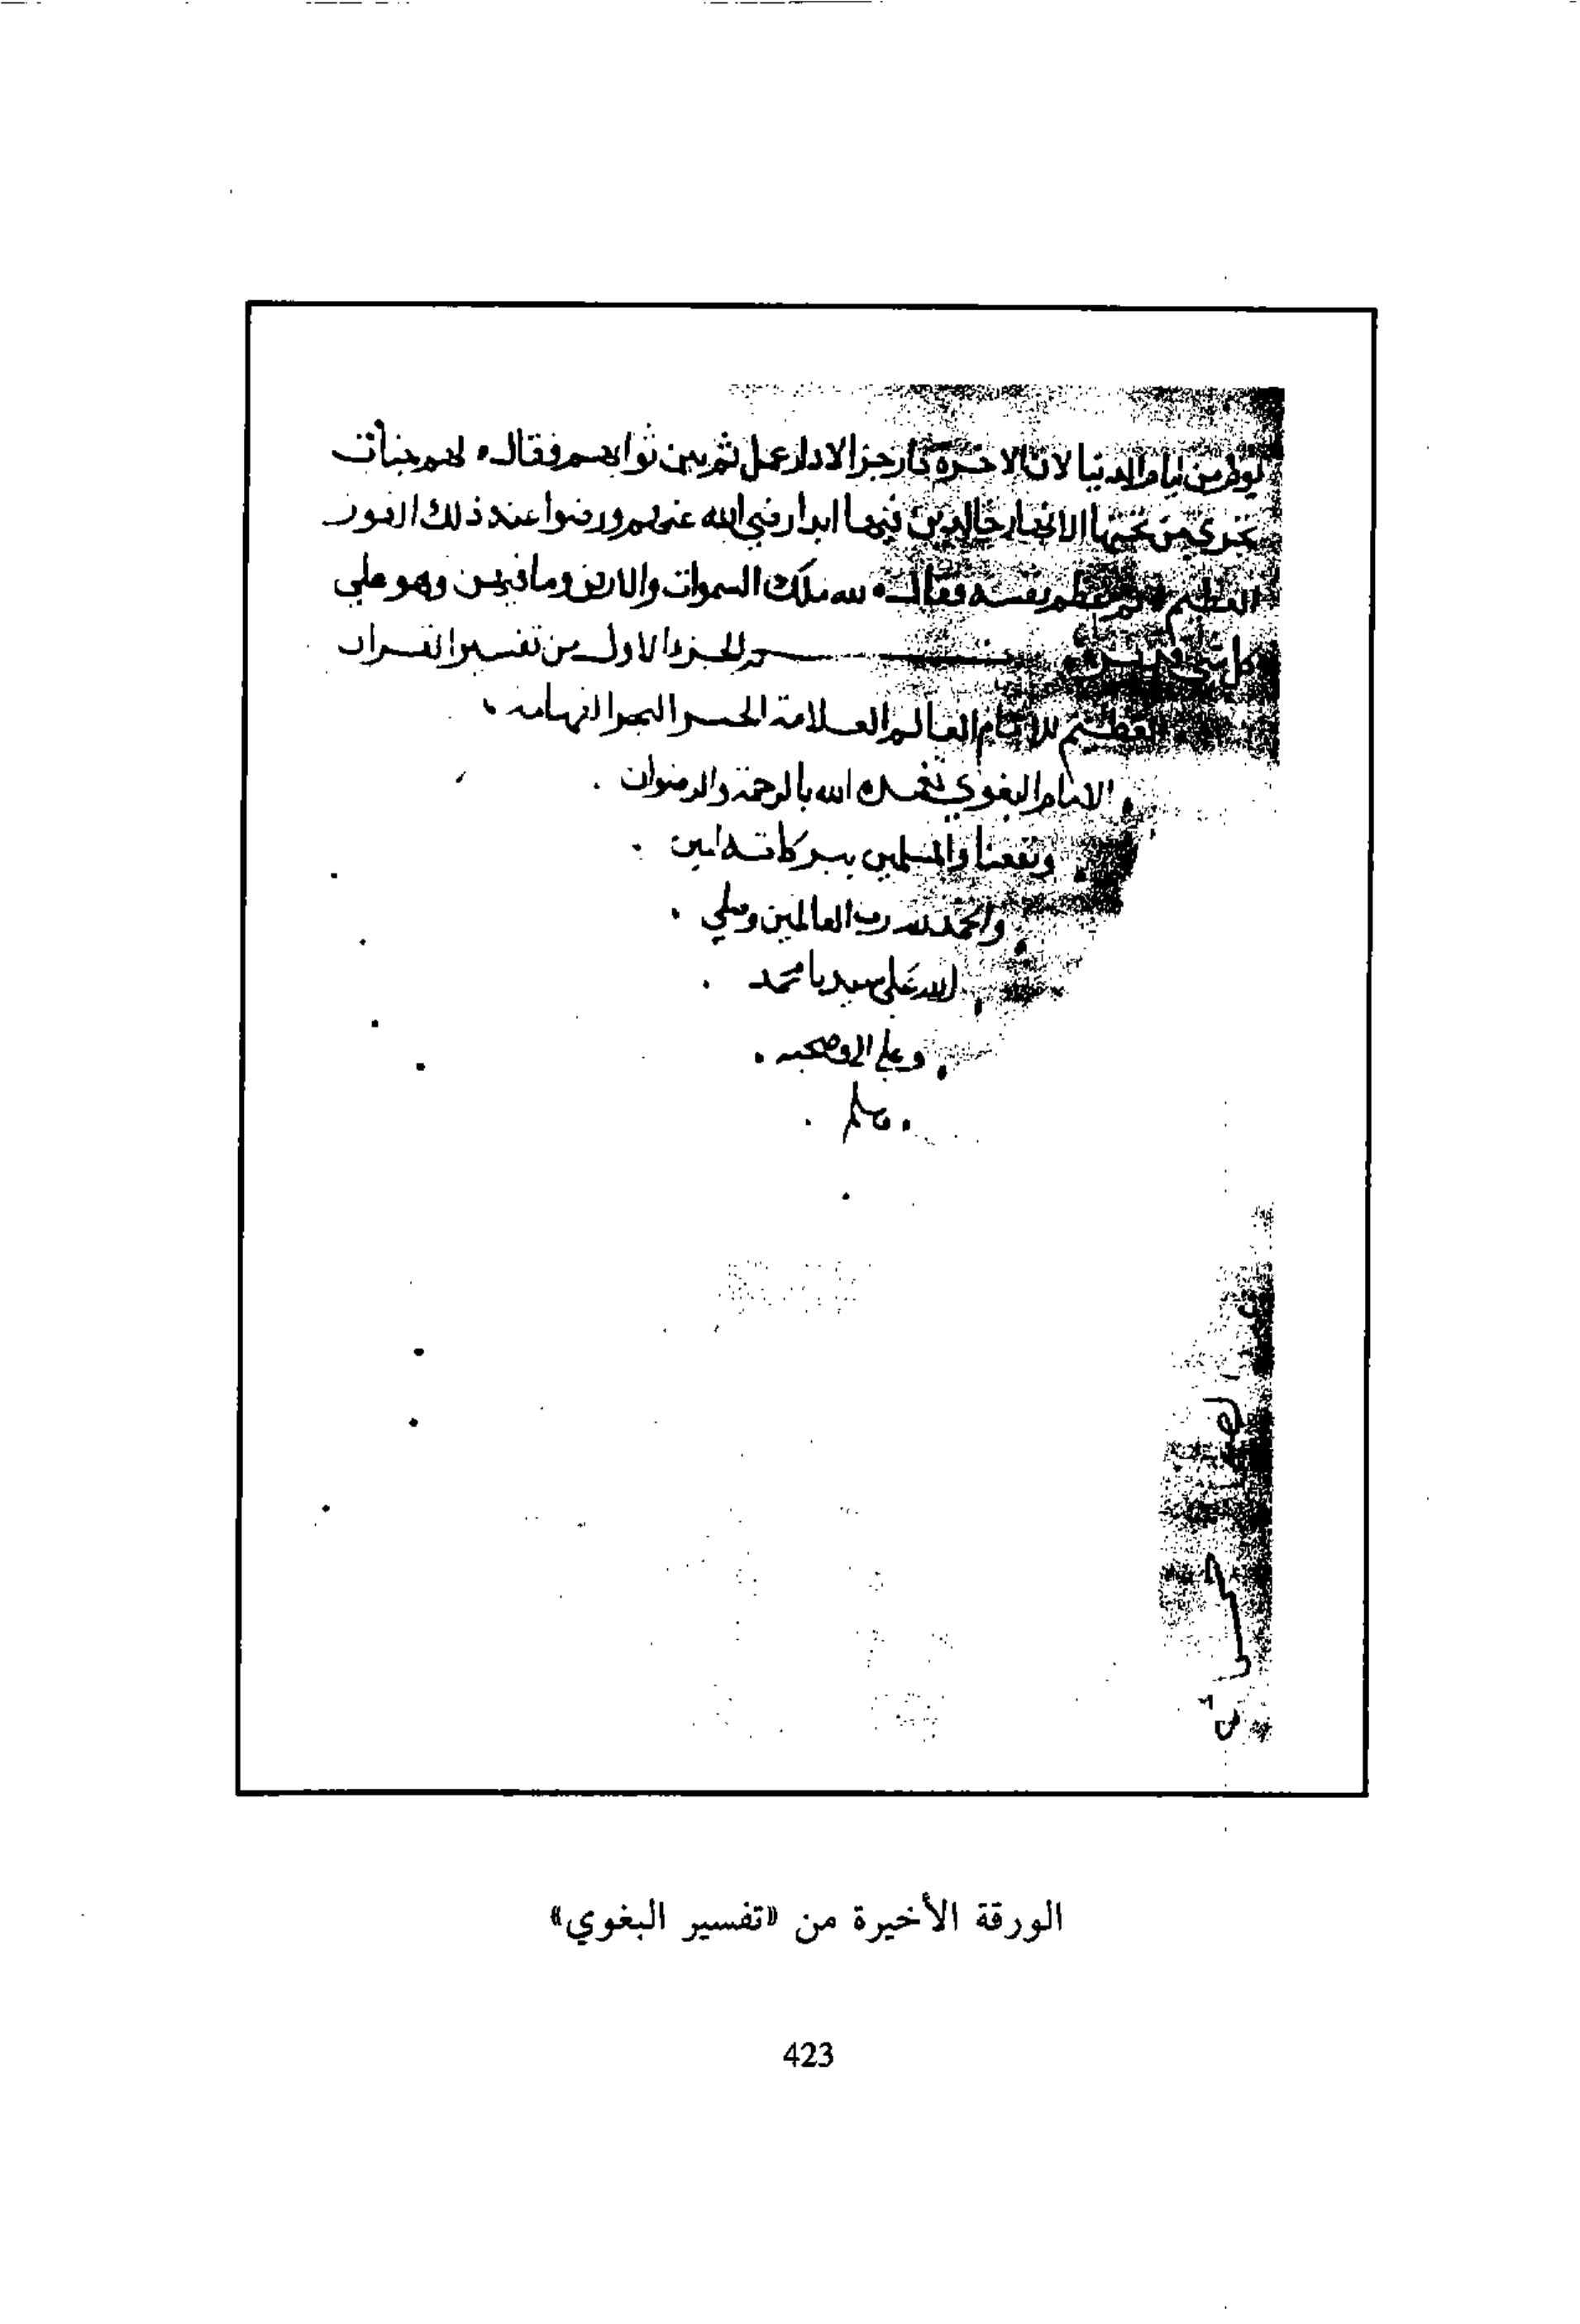 يوم من ايام الدنيا لان الاخرة دار جزا لا دار عمل ثم بين ثوابهم فقال لهم جنات
تجري من تحتها الانهار خالدين فيها ابدا رضي الله عنهم ورضوا عنه ذلك الفوز
العظيم ثم عظم نفسه فقال لله ملك السموات والارض وما فيهن وهو على
كل شي قدير تم الجزء الاول من تفسير القران
العظيم للامام العالم العلامة الحبر البحر الفهامه
الامام البغوي تغمده الله بالرحمة والرضوان
ونفعنا والمسلمين ببركاته امين
والحمد لله رب العالمين وصلي
الله على سيدنا محمد
وعلى اله وصحبه
وسلم
الورقة الأخيرة من «تفسير البغوي»
423